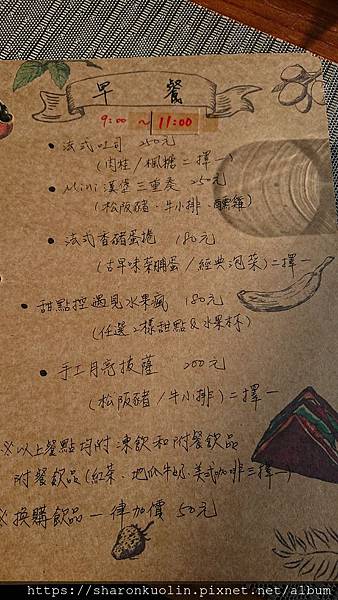 早餐
9:00 ~ 11:00
• 法式吐司 250元
(肉桂/楓糖二擇一)
• Mini漢堡三重奏 250元
(松阪豬、牛小排、醺雞)
• 法式香豬蛋捲 180元
(古早味菜脯蛋/經典泡菜)二擇一
• 甜點控遇見水果瘋 180元
(任選2樣甜點&水果杯)
• 手工月亮披薩 200元
(松阪豬/牛小排)二擇一
※以上餐點均附凍飲和附餐飲品
附餐飲品(紅茶、地瓜牛奶、美式咖啡三擇一)
※換購飲品一律加價50元
https://sharonkuolin.pixnet.net/album